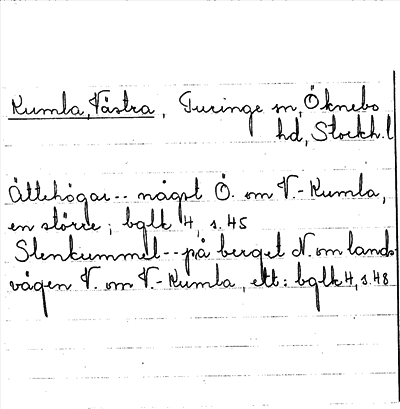 Kumla, Västra, Turinge sn, Öknebo
hd, Stockh. l
Ättehögar -- något Ö. om V.-Kumla,
en större; bglk 4, s. 45
Stenkummel -- på berget N. om lands-
vägen V. om V.-Kumla, ett: bglk 4, s. 48